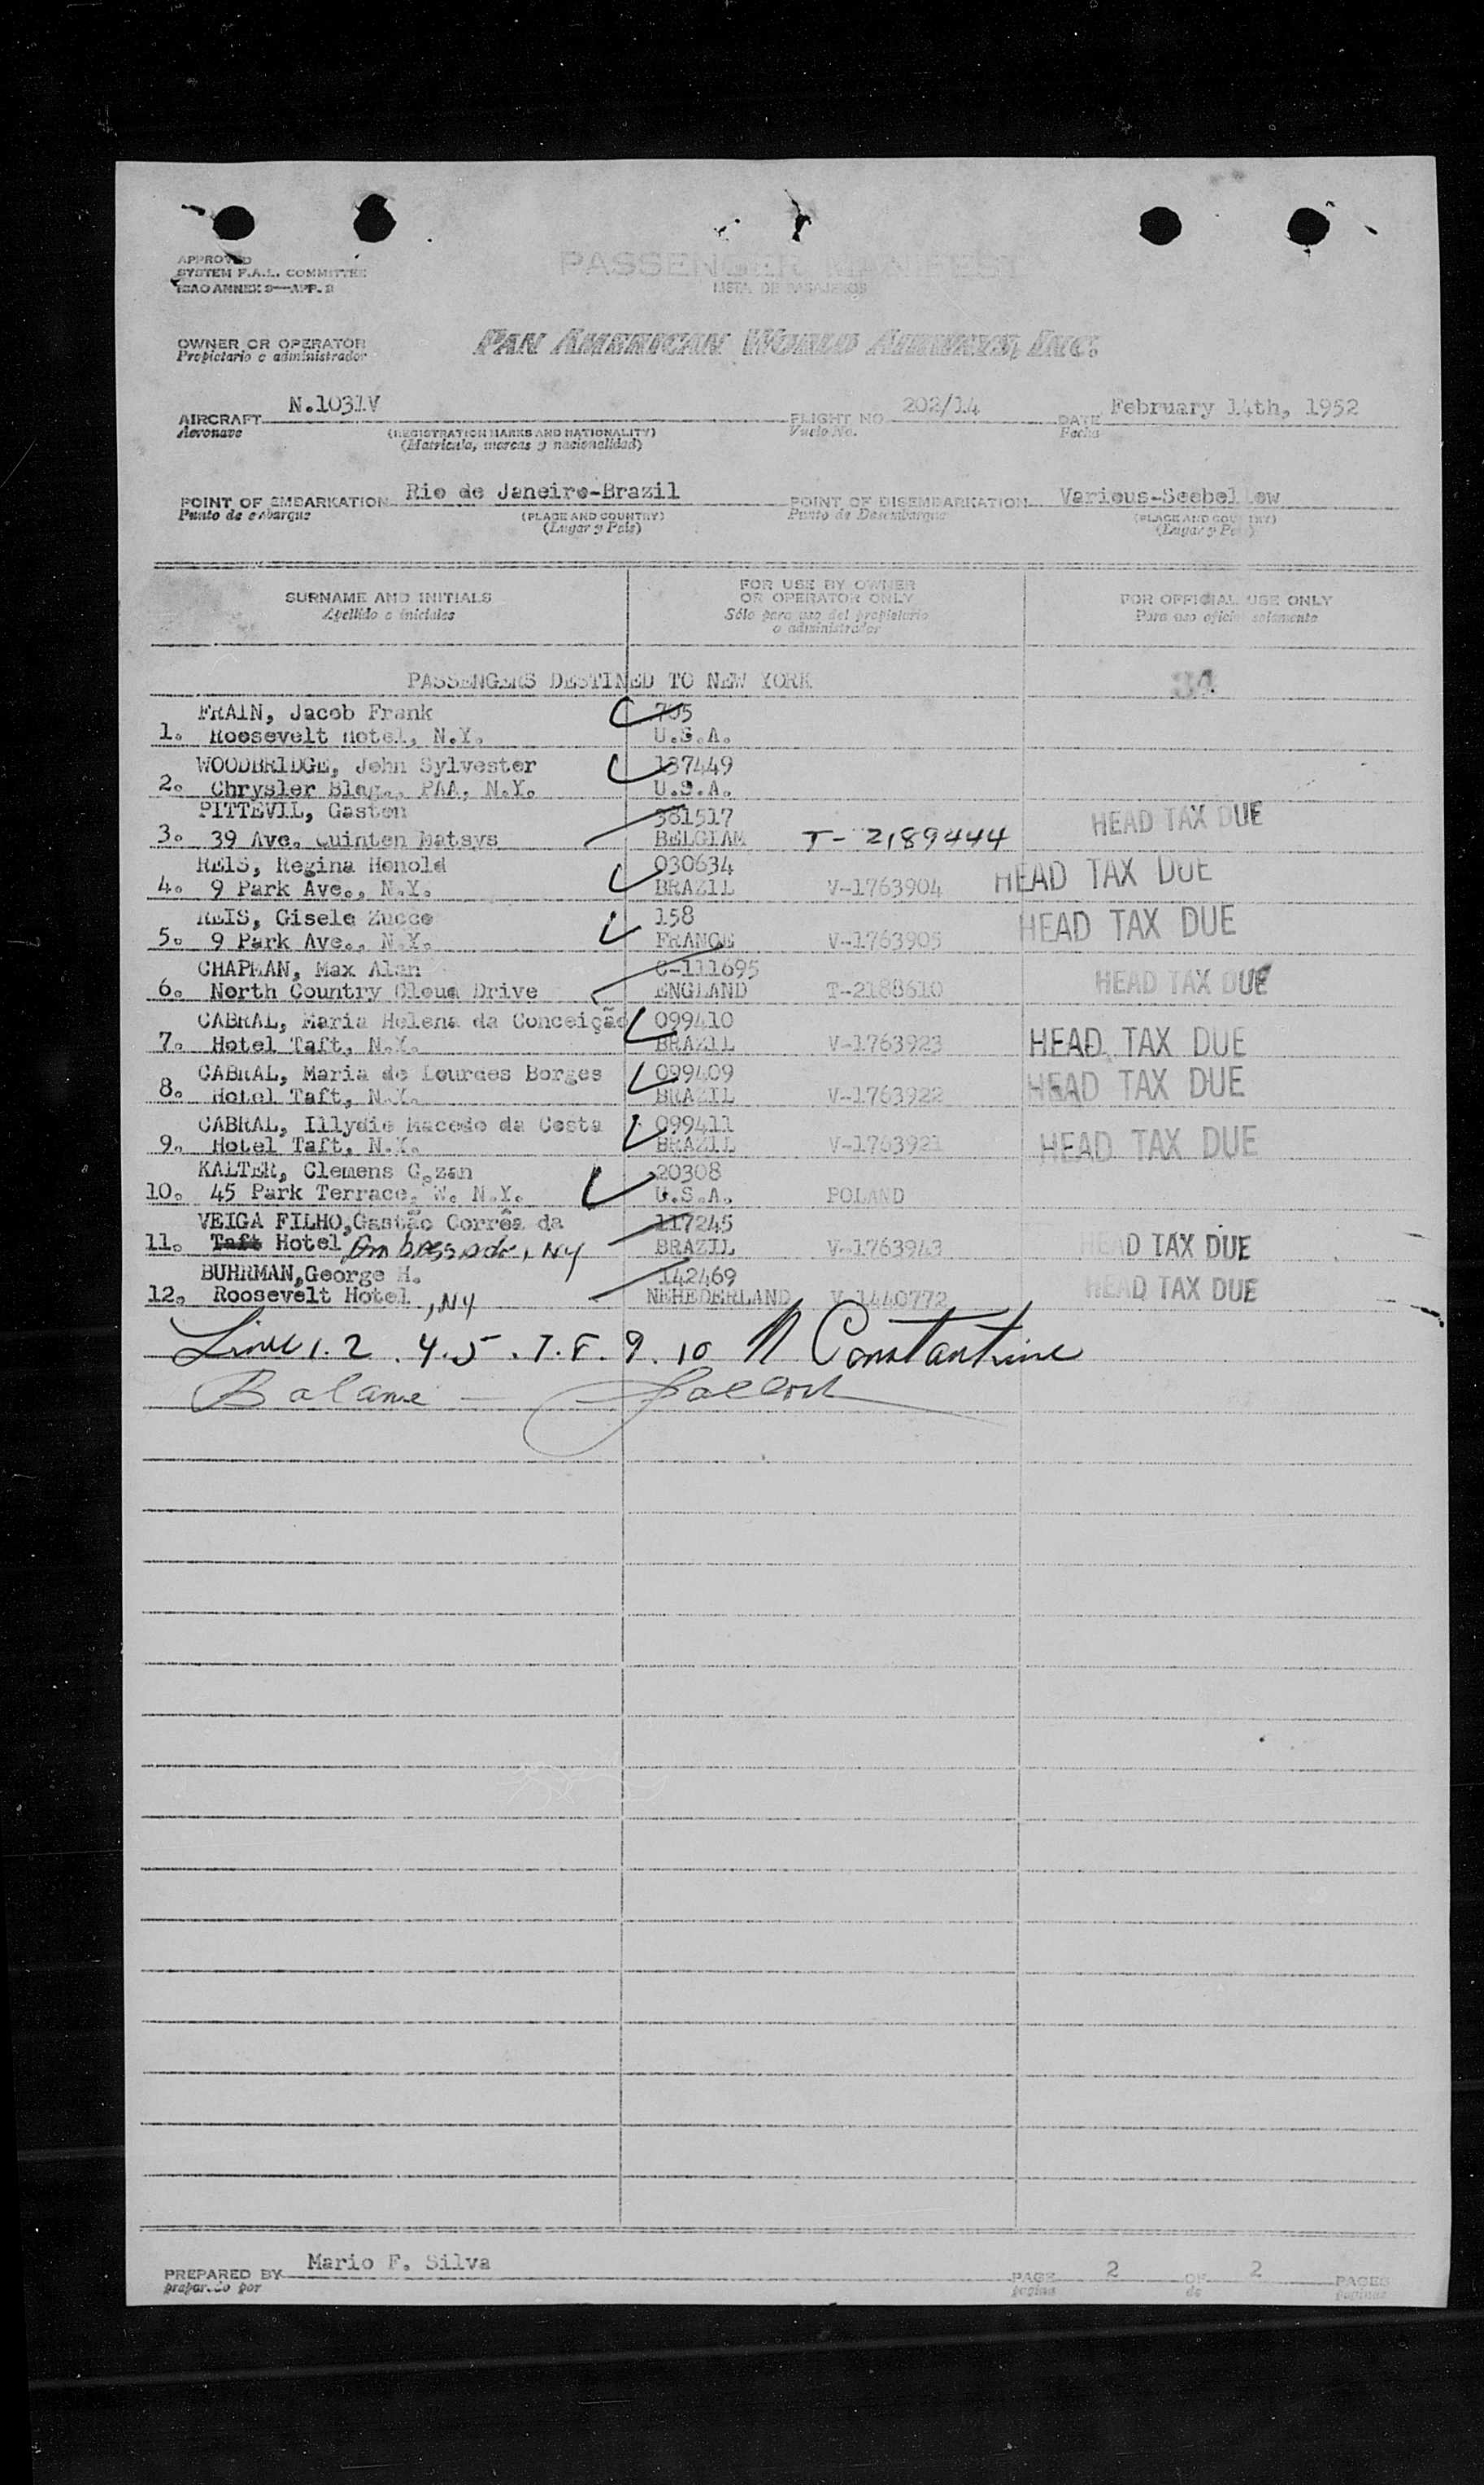 APPROVED
SYSTEM F.A.L. COMMITTEE
ICAO ANNEX 9—APP. 2
PASSENGER MANIFEST
LISTA DE PASAJEROS
OWNER OR OPERATOR
Propietario o administrador
PAN AMERICAN WORLD AIRWAYS, INC.
AIRCRAFT N.1031V
Aeronave
(REGISTRATION MARKS AND NATIONALITY)
(Matricula, marcas y nacionalidad)
FLIGHT NO. 202/14
Vuelo No.
DATE February 14th, 1952
Fecha
POINT OF EMBARKATION Rio de Janeiro-Brazil
Punto de embarque
(PLACE AND COUNTRY)
(Lugar y Pais)
POINT OF DISEMBARKATION Various-Seebellow
Punto de Desembarque
(PLACE AND COUNTRY)
(Lugar y Pais)
SURNAME AND INITIALS
Apellido e iniciales
FOR USE BY OWNER
OR OPERATOR ONLY
Sólo para uso del propietario
o administrador
FOR OFFICIAL USE ONLY
Para uso oficial solamente
PASSENGERS DESTINED TO NEW YORK 34
FRAIN, Jacob Frank 705
1. Roosevelt Hotel, N.Y. U.S.A.
WOODBRIDGE, John Sylvester 137449
2. Chrysler Bldg., PAA, N.Y. U.S.A.
PITTEVIL, Gaston 361517
3. 39 Ave. Quinten Matsys BELGIAM T-2189444 HEAD TAX DUE
REIS, Regina Henold 030634
4. 9 Park Ave., N.Y. BRAZIL V-1763904 HEAD TAX DUE
REIS, Gisele Zucco 158
5. 9 Park Ave., N.Y. FRANCE V-1763905 HEAD TAX DUE
CHAPMAN, Max Alan C-111695
6. North Country Cloud Drive ENGLAND T-2188610 HEAD TAX DUE
CABRAL, Maria Helena da Conceição 099410
7. Hotel Taft, N.Y. BRAZIL V-1763923 HEAD TAX DUE
CABRAL, Maria de Lourdes Borges 099409
8. Hotel Taft, N.Y. BRAZIL V-1763922 HEAD TAX DUE
CABRAL, Illydio Macedo da Costa 099411
9. Hotel Taft, N.Y. BRAZIL V-1763921 HEAD TAX DUE
KALTER, Clemens G.zan 20308
10. 45 Park Terrace, W. N.Y. U.S.A. POLAND
VEIGA FILHO,Gastão Corrêa da 117245
11. Taft Hotel Ambassador, NY BRAZIL V-1763943 HEAD TAX DUE
BUHRMAN,George H. 142469
12. Roosevelt Hotel, NY NEHEDERLAND V-1440772 HEAD TAX DUE
Line 1. 2 . 4. 5 . 7. 8. 9. 10 N Constantine
Balance —
PREPARED BY Mario F. Silva
preparado por
PAGE 2 OF 2 PAGES
pagina de paginas